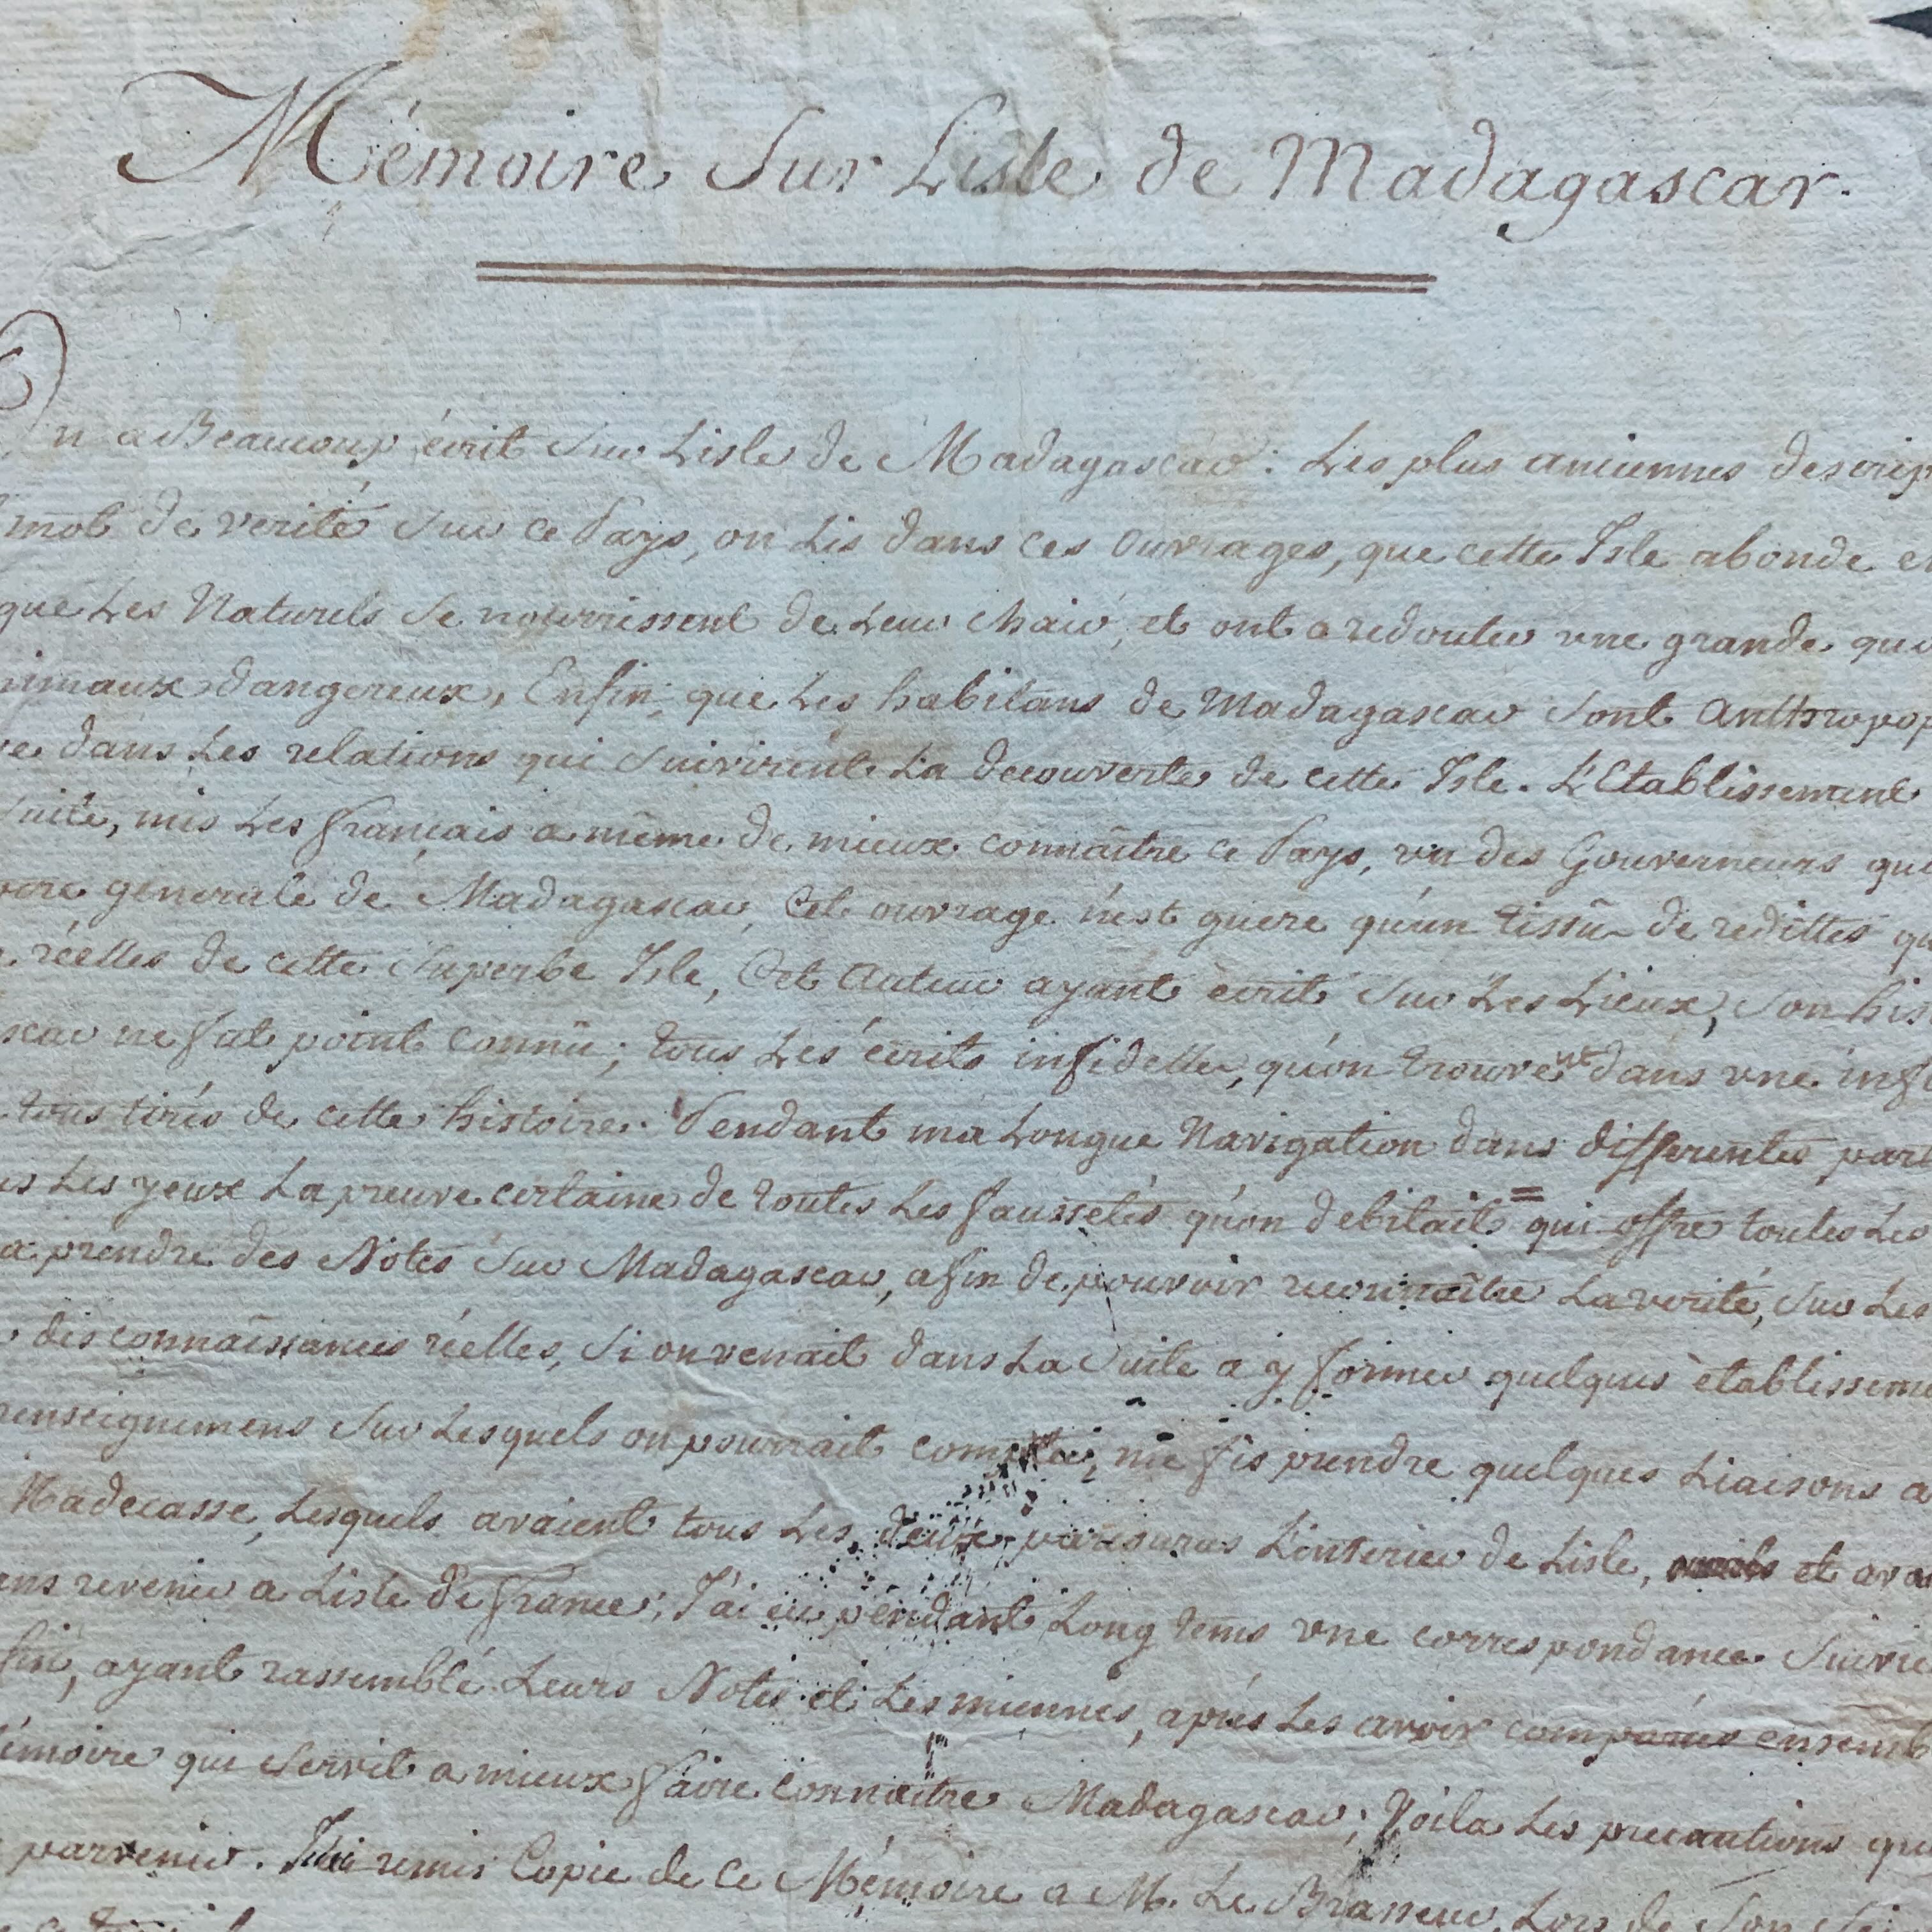 Mémoire Sur Lisle de Madagascar.
On a Beaucoup écrit Sur Lisle de Madagascar: Les plus anciennes descrip
mot de verité Sur ce Pays, on Lis dans ces Ouvrages, que cette Isle abonde en
que Les Naturels Se nourrissent de Leur chair, et ont a redouter une grande qua
nimaux dangereux, Enfin, que Les habitans de Madagascar Sont Anthropop
re dans Les relations qui Suivirent La decouverte de cette Isle. L'Etablissement
Suite, mis Les français a même de mieux connaître ce Pays, un des Gouverneurs qui
oire génerale de Madagascar, Cet ouvrage n'est guere qu'un tissû de redittes qu
réelles de cette Superbe Isle, Cet Auteur ayant écrit Sur Les Lieux, Son his
scar ne fut point connû; tous Les écrits infidelles, qu'on trouvent dans une inf
tous tirés de cette histoire. Pendant ma Longue Navigation dans differentes part
us Les yeux La preuve certaine de toutes Les faussetés qu'on debitait = qui offre toutes Les
a prendre des Notes Sur Madagascar, afin de pouvoir reconnaître La verité, Sur Les
des connaissances réelles, Si on venait dans La Suite a y former quelques établissem
renseignemens Sur Lesquels on pourrait compter, me fis prendre quelques Liaisons a
Madecasse, Lesquels avaient tous Les deux parcourus L'interieur de Lisle, et ava
ans revenir a Lisle de france; J'ai eu pendant Long tems une correspondance Suivie
fin, ayant rassemblé Leurs Notes et Les miennes, après Les avoir comparées ensemb
émoire qui Servit a mieux faire connaitre Madagascar; Voila Les precautions que
parvenir. J'ai remis Copie de Ce Mémoire a M. Le Brasseur, Lors de Son